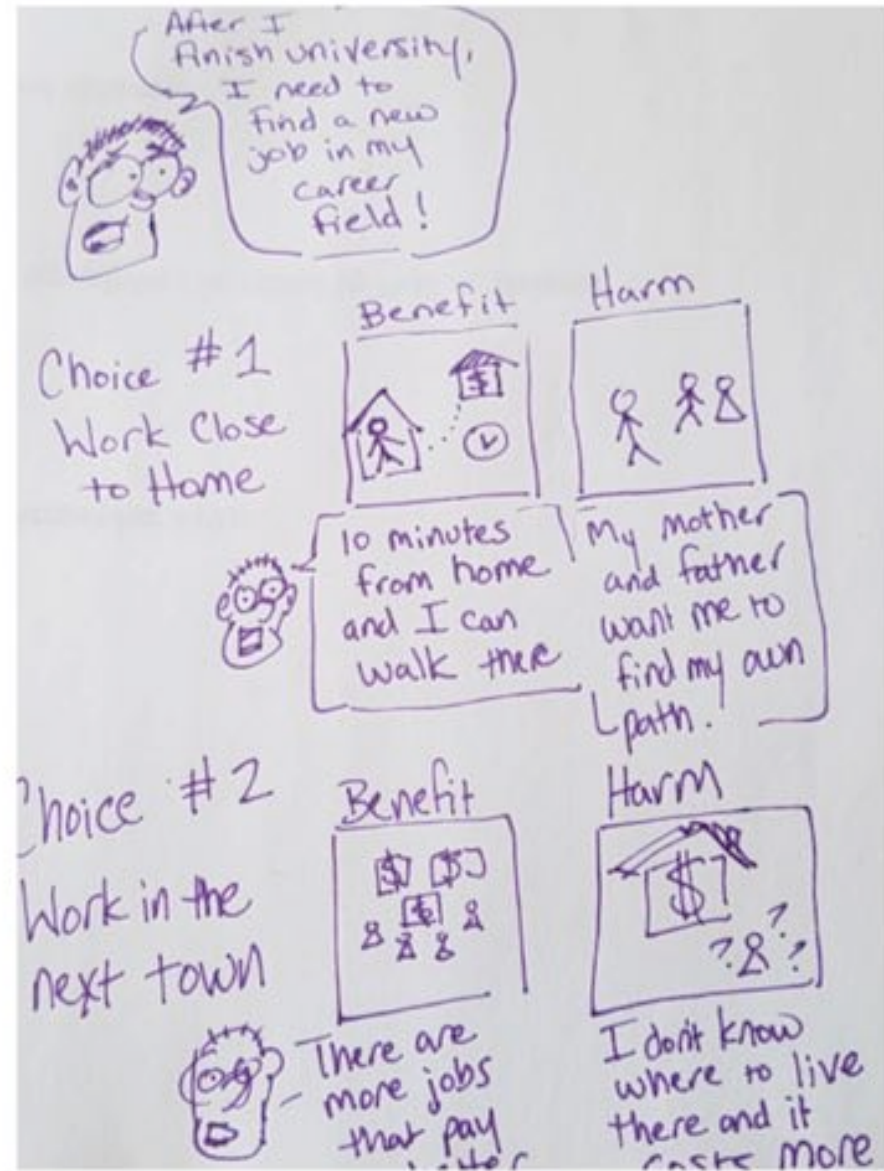 After I
finish university,
I need to
find a new
job in my
career
field!
Choice #1
Work Close
to Home
Benefit
$
10 minutes
from home
and I can
walk there
Harm
My mother
and father
want me to
find my own
path.
Choice #2
Work in the
next town
Benefit
$ $
$
There are
more jobs
that pay
Harm
$
? ? ?
I don't know
where to live
there and it
costs more